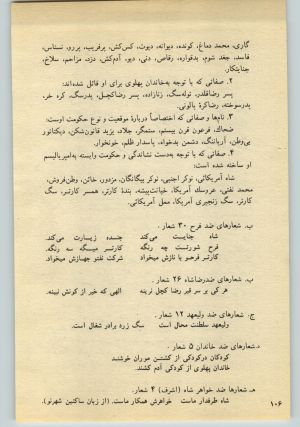 گاری، محمد دماغ، کونده، دیوانه، دیوث، کس‌کش، پرفریب، پررو، نسناس،
فاسد، جغد شوم، بدقواره، رقاص، دنی، دیو، آدم‌کش، دزد، مزاحم، سلاخ،
جنایتکار.
۲. صفاتی که با توجه به‌خاندان پهلوی برای او قائل شده‌اند:
پسر رضاقلدر، توله‌سگ، زنازاده، پسر رضاکچل، پدرسگ، کره خر،
پدرسوخته، رضاکرهٔ پالونی.
۳. نام‌ها و صفاتی که اختصاصاً دربارهٔ موقعیت و نوع حکومت اوست:
ضحاک، فرعون قرن بیستم، ستمگر، جلاد، یزید قانون‌شکن، دیکتاتور
بی‌وطن، آریاننگ، دشمن بدخواه، پاسدار ظلم، خونخوار.
۴. صفاتی که با توجه به‌دست نشاندگی و حکومت وابسته به‌امپریالیسم
او ساخته شده است:
شاه آمریکائی، نوکر اجنبی، نوکر بیگانگان، مزدور، خائن، وطن‌فروش،
محمد نفتی، عروسک آمریکا، خیانت‌پیشه، بندهٔ کارتر، همسر کارتر، سگ
کارتر، سگ زنجیری آمریکا، محل آمریکائی.
آ. شعارهای ضد فرح ۳۰ شعار .
شاه جنایت می‌کند جنده زیارت می‌کند
فرح شورتت چه رنگه کارتر میگه سه رنگه
کارتر فرحو با نازش میخواد شرکت نفتو جهازش میخواد.
ب. شعارهای ضدرضاشاه ۲۶ شعار .
هر کی بر سر قبر رضا کچل نرینه الهی که خیر از کونش نبینه.
ج. شعارهای ضد ولیعهد ۱۲ شعار .
ولیعهد سلطنت محال است سگ زرد برادر شغال است.
د.شعارهای ضد خاندان ۵ شعار .
کودکان درکودکی از کشتن موران خوشند
خاندان پهلوی از کودکی آدم کشند.
هـ. شعارهای ضد خواهر شاه (اشرف) ۴ شعار .
شاه طرفدار ماست خواهرش همکار ماست. (از زبان ساکنین شهرنو).
۱۰۶